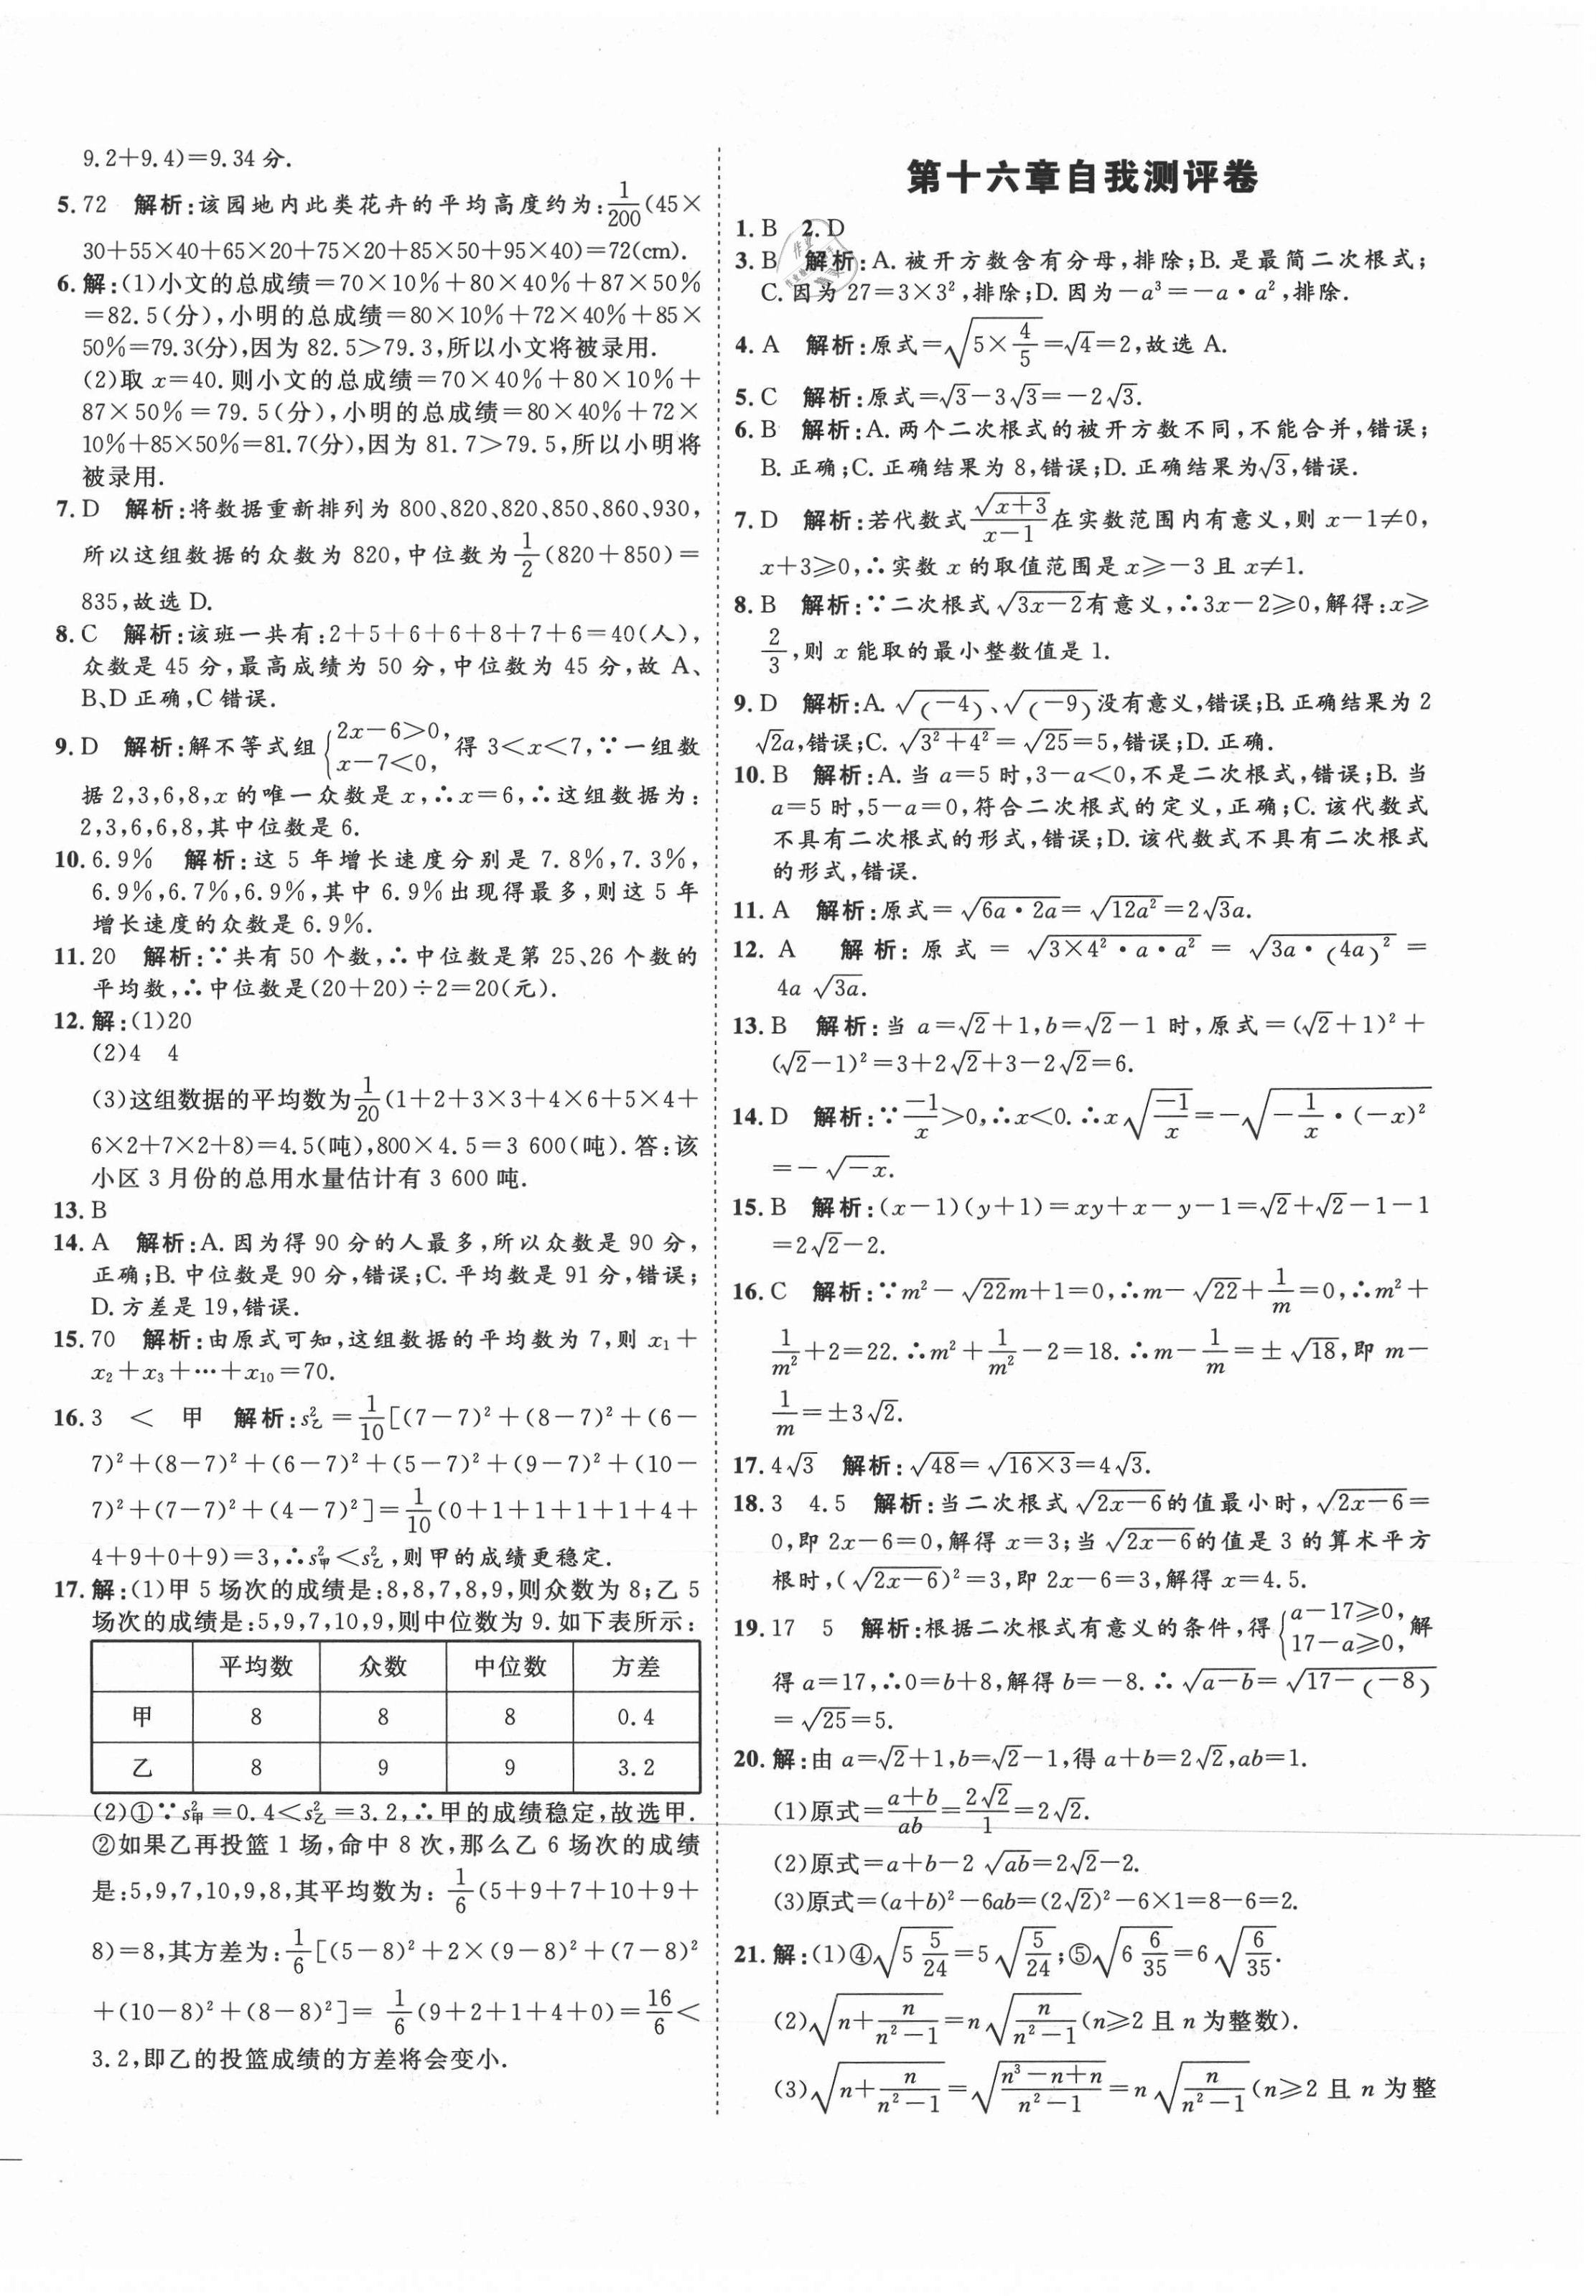 9.2+9.4)=9.34 分.
5. 72　解析:该园地内此类花卉的平均高度约为:$\frac{1}{200}$(45×
30+55×40+65×20+75×20+85×50+95×40)=72(cm).
6. 解:(1)小文的总成绩=70×10%+80×40%+87×50%
=82.5(分),小明的总成绩=80×10%+72×40%+85×
50%=79.3(分),因为 82.5>79.3,所以小文将被录用.
(2)取 x=40.则小文的总成绩=70×40%+80×10%+
87×50%=79.5(分),小明的总成绩=80×40%+72×
10%+85×50%=81.7(分),因为 81.7>79.5,所以小明将
被录用.
7. D　解析:将数据重新排列为 800、820、820、850、860、930,
所以这组数据的众数为 820,中位数为$\frac{1}{2}$(820+850)=
835,故选 D.
8. C　解析:该班一共有:2+5+6+6+8+7+6=40(人),
众数是 45 分,最高成绩为 50 分,中位数为 45 分,故 A、
B、D 正确,C 错误.
9. D　解析:解不等式组$\begin{cases}2x-6>0,\\x-7<0,\end{cases}$得 3<x<7,∵一组数
据 2,3,6,8,x 的唯一众数是 x,∴x=6,∴这组数据为:
2,3,6,6,8,其中位数是 6.
10. 6.9%　解析:这 5 年增长速度分别是 7.8%,7.3%,
6.9%,6.7%,6.9%,其中 6.9%出现得最多,则这 5 年
增长速度的众数是 6.9%.
11. 20　解析:∵共有 50 个数,∴中位数是第 25、26 个数的
平均数,∴中位数是(20+20)÷2=20(元).
12. 解:(1)20
(2)4　4
(3)这组数据的平均数为$\frac{1}{20}$(1+2+3×3+4×6+5×4+
6×2+7×2+8)=4.5(吨),800×4.5=3 600(吨).答:该
小区 3 月份的总用水量估计有 3 600 吨.
13. B
14. A　解析:A.因为得 90 分的人最多,所以众数是 90 分,
正确;B.中位数是 90 分,错误;C.平均数是 91 分,错误;
D.方差是 19,错误.
15. 70　解析:由原式可知,这组数据的平均数为 7,则 $x_1$+
$x_2+x_3+\cdots+x_{10}$=70.
16. 3　<　甲　解析:$s^2_乙=\frac{1}{10}$[(7-7)²+(8-7)²+(6-
7)²+(8-7)²+(6-7)²+(5-7)²+(9-7)²+(10-
7)²+(7-7)²+(4-7)²]=$\frac{1}{10}$(0+1+1+1+1+4+
4+9+0+9)=3,∴$s^2_甲<s^2_乙$,则甲的成绩更稳定.
17. 解:(1)甲 5 场次的成绩是:8,8,7,8,9,则众数为 8;乙 5
场次的成绩是:5,9,7,10,9,则中位数为 9.如下表所示:
平均数　众数　中位数　方差
甲　8　8　8　0.4
乙　8　9　9　3.2
(2)①∵$s^2_甲$=0.4<$s^2_乙$=3.2,∴甲的成绩稳定,故选甲.
②如果乙再投篮 1 场,命中 8 次,那么乙 6 场次的成绩
是:5,9,7,10,9,8,其平均数为:$\frac{1}{6}$(5+9+7+10+9+
8)=8,其方差为:$\frac{1}{6}$[(5-8)²+2×(9-8)²+(7-8)²
+(10-8)²+(8-8)²]=$\frac{1}{6}$(9+2+1+4+0)=$\frac{16}{6}$<
3.2,即乙的投篮成绩的方差将会变小.
第十六章自我测评卷
1. B　2. D
3. B　解析:A.被开方数含有分母,排除;B.是最简二次根式;
C.因为 27=3×3²,排除;D.因为-a³=-a·a²,排除.
4. A　解析:原式=$\sqrt{5×\frac{4}{5}}$=$\sqrt{4}$=2,故选 A.
5. C　解析:原式=$\sqrt{3}$-3$\sqrt{3}$=-2$\sqrt{3}$.
6. B　解析:A.两个二次根式的被开方数不同,不能合并,错误;
B.正确;C.正确结果为 8,错误;D.正确结果为$\sqrt{3}$,错误.
7. D　解析:若代数式$\frac{\sqrt{x+3}}{x-1}$在实数范围内有意义,则 x-1≠0,
x+3≥0,∴实数 x 的取值范围是 x≥-3 且 x≠1.
8. B　解析:∵二次根式$\sqrt{3x-2}$有意义,∴3x-2≥0,解得:x≥
$\frac{2}{3}$,则 x 能取的最小整数值是 1.
9. D　解析:A.$\sqrt{(-4)}$、$\sqrt{(-9)}$没有意义,错误;B.正确结果为 2
$\sqrt{2}$a,错误;C.$\sqrt{3^2+4^2}$=$\sqrt{25}$=5,错误;D.正确.
10. B　解析:A.当 a=5 时,3-a<0,不是二次根式,错误;B.当
a=5 时,5-a=0,符合二次根式的定义,正确;C.该代数式
不具有二次根式的形式,错误;D.该代数式不具有二次根式
的形式,错误.
11. A　解析:原式=$\sqrt{6a·2a}$=$\sqrt{12a^2}$=2$\sqrt{3}$a.
12. A　解析:原式=$\sqrt{3×4^2·a·a^2}$=$\sqrt{3a·(4a)^2}$=
4a$\sqrt{3a}$.
13. B　解析:当 a=$\sqrt{2}$+1,b=$\sqrt{2}$-1 时,原式=($\sqrt{2}$+1)²+
($\sqrt{2}$-1)²=3+2$\sqrt{2}$+3-2$\sqrt{2}$=6.
14. D　解析:∵$\frac{-1}{x}$>0,∴x<0.∴x$\sqrt{\frac{-1}{x}}$=-$\sqrt{-\frac{1}{x}·(-x)^2}$
=-$\sqrt{-x}$.
15. B　解析:(x-1)(y+1)=xy+x-y-1=$\sqrt{2}$+$\sqrt{2}$-1-1
=2$\sqrt{2}$-2.
16. C　解析:∵m²-$\sqrt{22}$m+1=0,∴m-$\sqrt{22}$+$\frac{1}{m}$=0,∴m²+
$\frac{1}{m^2}$+2=22.∴m²+$\frac{1}{m^2}$-2=18.∴m-$\frac{1}{m}$=±$\sqrt{18}$,即 m-
$\frac{1}{m}$=±3$\sqrt{2}$.
17. 4$\sqrt{3}$　解析:$\sqrt{48}$=$\sqrt{16×3}$=4$\sqrt{3}$.
18. 3　4.5　解析:当二次根式$\sqrt{2x-6}$的值最小时,$\sqrt{2x-6}$=
0,即 2x-6=0,解得 x=3;当$\sqrt{2x-6}$的值是 3 的算术平方
根时,($\sqrt{2x-6}$)²=3,即 2x-6=3,解得 x=4.5.
19. 17　5　解析:根据二次根式有意义的条件,得$\begin{cases}a-17≥0,\\17-a≥0,\end{cases}$解
得 a=17,∴0=b+8,解得 b=-8.∴$\sqrt{a-b}$=$\sqrt{17-(-8)}$
=$\sqrt{25}$=5.
20. 解:由 a=$\sqrt{2}$+1,b=$\sqrt{2}$-1,得 a+b=2$\sqrt{2}$,ab=1.
(1)原式=$\frac{a+b}{ab}$=$\frac{2\sqrt{2}}{1}$=2$\sqrt{2}$.
(2)原式=a+b-2$\sqrt{ab}$=2$\sqrt{2}$-2.
(3)原式=(a+b)²-6ab=(2$\sqrt{2}$)²-6×1=8-6=2.
21. 解:(1)④$\sqrt{5\frac{5}{24}}$=5$\sqrt{\frac{5}{24}}$;⑤$\sqrt{6\frac{6}{35}}$=6$\sqrt{\frac{6}{35}}$.
(2)$\sqrt{n+\frac{n}{n^2-1}}$=n$\sqrt{\frac{n}{n^2-1}}$(n≥2 且 n 为整数).
(3)$\sqrt{n+\frac{n}{n^2-1}}$=$\sqrt{\frac{n^3-n+n}{n^2-1}}$=n$\sqrt{\frac{n}{n^2-1}}$(n≥2 且 n 为整